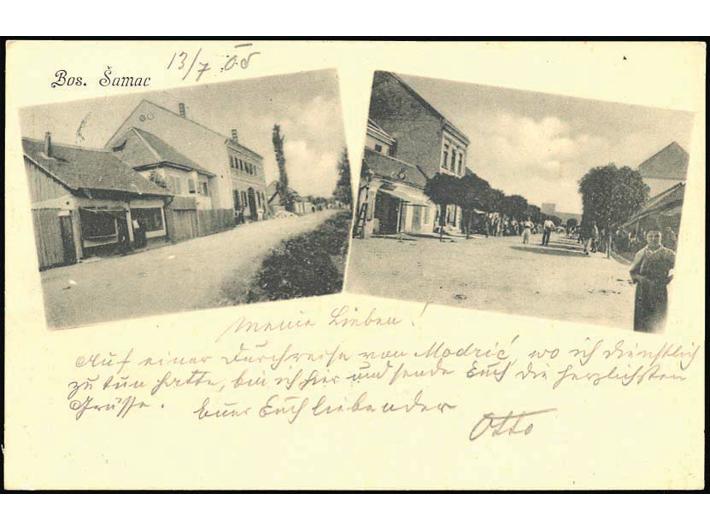 Bos. Šamac
13/7 05
Meine Lieben!
Auf einer Durchreise von Modrić, wo ich dienstlich
zu tun hatte, bin ich hier und sende Euch die herzlichsten
Grüsse. Euer Euch liebender
Otto